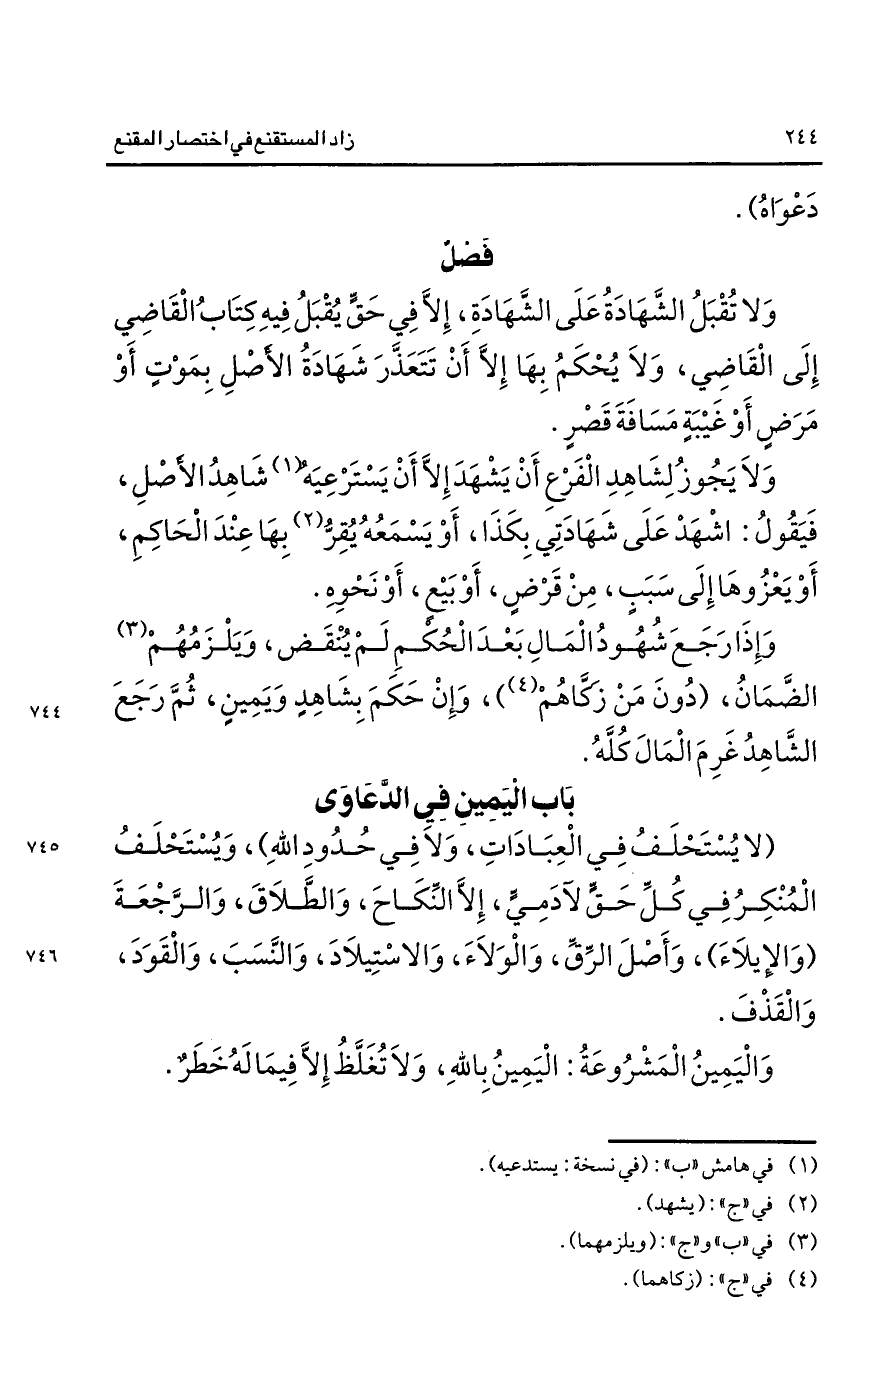 ٢٤٤ زاد المستقنع في اختصار المقنع
دَعْوَاهُ) .
فَصْلٌ
وَلا تُقْبَلُ الشَّهَادَةُ عَلَى الشَّهَادَةِ ، إِلاَّ فِي حَقٍّ يُقْبَلُ فِيهِ كِتَابُ الْقَاضِي
إِلَى الْقَاضِي ، وَلاَ يُحْكَمُ بِهَا إِلاَّ أَنْ تَتَعَذَّرَ شَهَادَةُ الأَصْلِ بِمَوْتٍ أَوْ
مَرَضٍ أَوْ غَيْبَةٍ مَسَافَةَ قَصْرٍ .
وَلاَ يَجُوزُ لِشَاهِدِ الْفَرْعِ أَنْ يَشْهَدَ إِلاَّ أَنْ يَسْتَرْعِيَهُ(١) شَاهِدُ الأَصْلِ ،
فَيَقُولُ : اشْهَدْ عَلَى شَهَادَتِي بِكَذَا ، أَوْ يَسْمَعُهُ يُقِرُّ(٢) بِهَا عِنْدَ الْحَاكِمِ ،
أَوْ يَعْزُوهَا إِلَى سَبَبٍ ، مِنْ قَرْضٍ ، أَوْ بَيْعٍ ، أَوْ نَحْوِهِ .
وَإِذَا رَجَعَ شُهُودُ الْمَالِ بَعْدَ الْحُكْمِ لَمْ يُنْقَض ، وَيَلْزَمُهُمْ(٣)
الضَّمَانُ ، (دُونَ مَنْ زَكَّاهُمْ(٤)) ، وَإِنْ حَكَمَ بِشَاهِدٍ وَيَمِينٍ ، ثُمَّ رَجَعَ ٧٤٤
الشَّاهِدُ غَرِمَ الْمَالَ كُلَّهُ .
بَاب الْيَمِينِ فِي الدَّعَاوَى
(لا يُسْتَحْلَفُ فِي الْعِبَادَاتِ ، وَلاَ فِي حُدُودِ اللهِ) ، وَيُسْتَحْلَفُ ٧٤٥
الْمُنْكِرُ فِي كُلِّ حَقٍّ لآدَمِيٍّ ، إِلاَّ النِّكَاحَ ، وَالطَّلاَقَ ، وَالرَّجْعَةَ
(وَالإِيلاَءَ) ، وَأَصْلَ الرِّقِّ ، وَالْوَلاَءَ ، وَالاسْتِيلاَدَ ، وَالنَّسَبَ ، وَالْقَوَدَ ، ٧٤٦
وَالْقَذْفَ .
وَالْيَمِينُ الْمَشْرُوعَةُ : الْيَمِينُ بِاللهِ ، وَلاَ تُغَلَّظُ إِلاَّ فِيمَا لَهُ خَطَرٌ .
(١) في هامش «ب» : (في نسخة : يستدعيه) .
(٢) في «ج» : (يشهد) .
(٣) في «ب» و«ج» : (ويلزمهما) .
(٤) في «ج» : (زكاهما) .